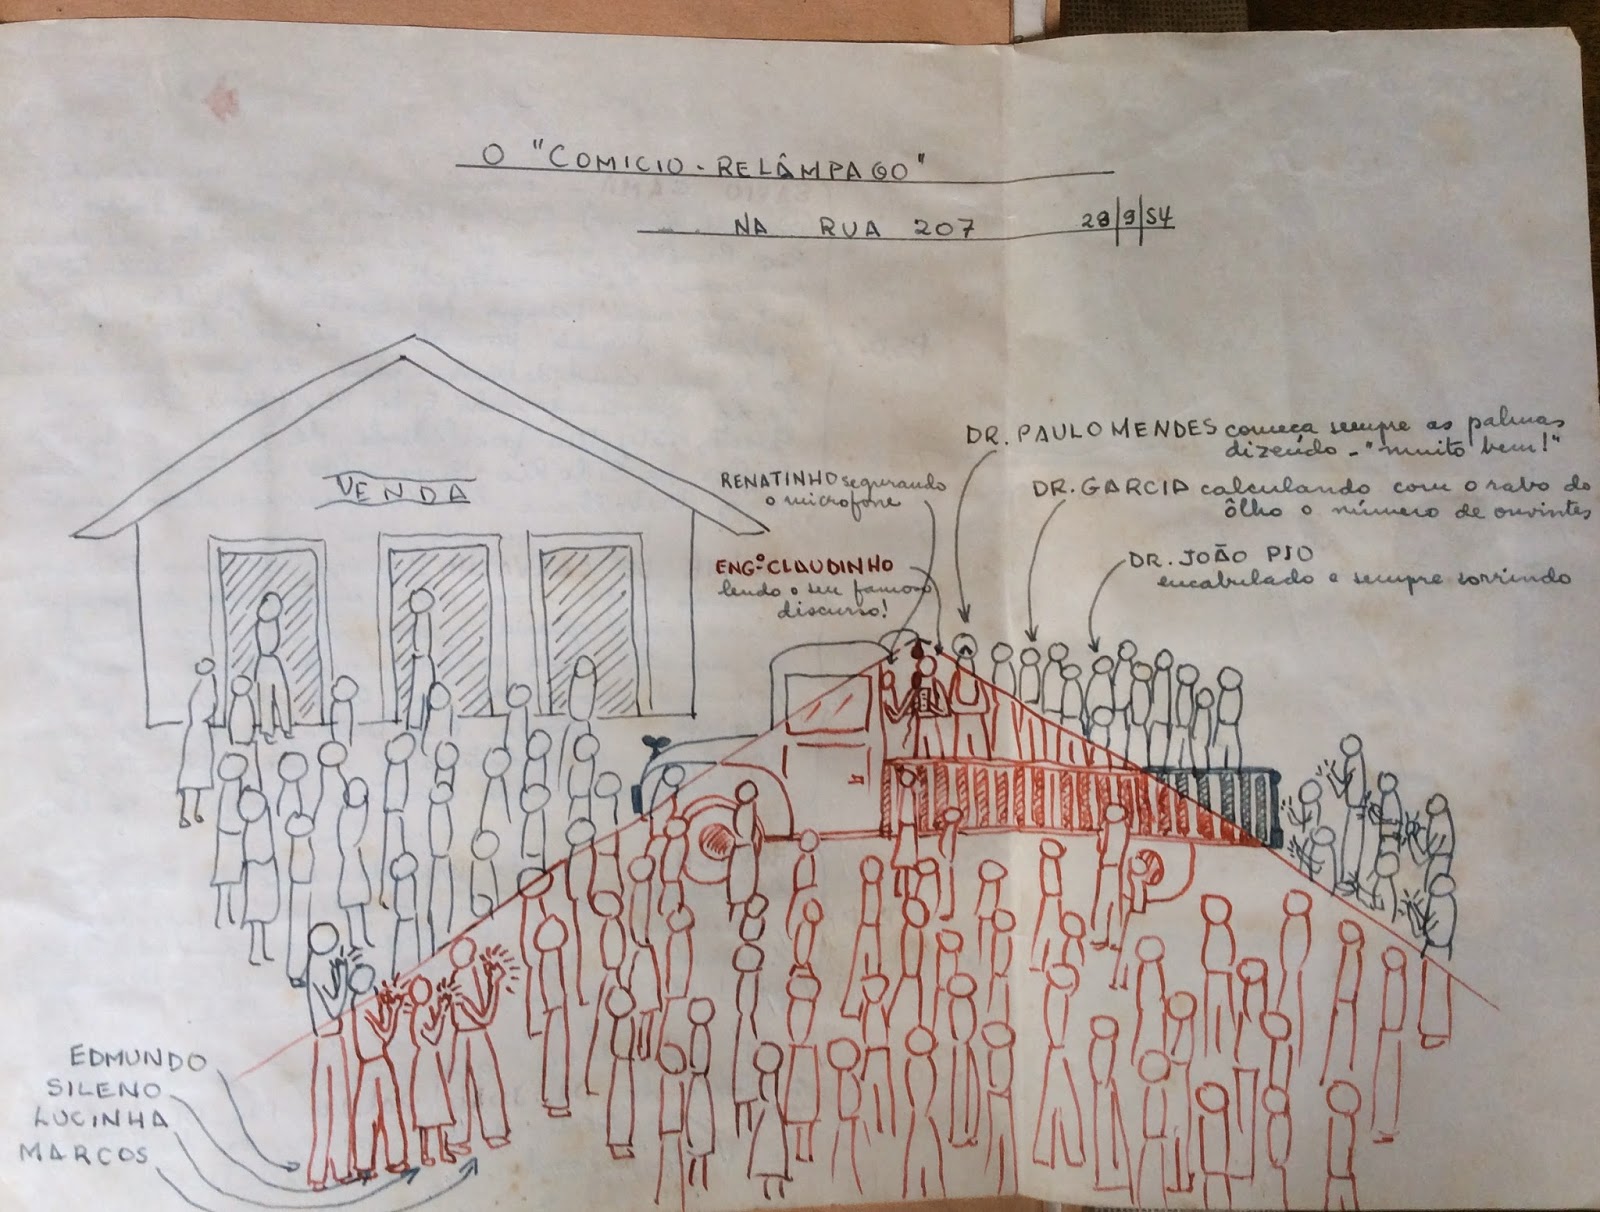 O "COMICIO-RELÂMPAGO"
NA RUA 207 28/9/54
VENDA
DR. PAULO MENDES começa sempre as palmas
dizendo - "muito bem!"
RENATINHO segurando
o microfone
DR. GARCIA calculando com o rabo do
ôlho o número de ouvintes
ENGº CLAUDINHO
lendo o seu famoso
discurso!
DR. JOÃO PIO
encabulado e sempre sorrindo
EDMUNDO
SILENO
LUCINHA
MARCOS